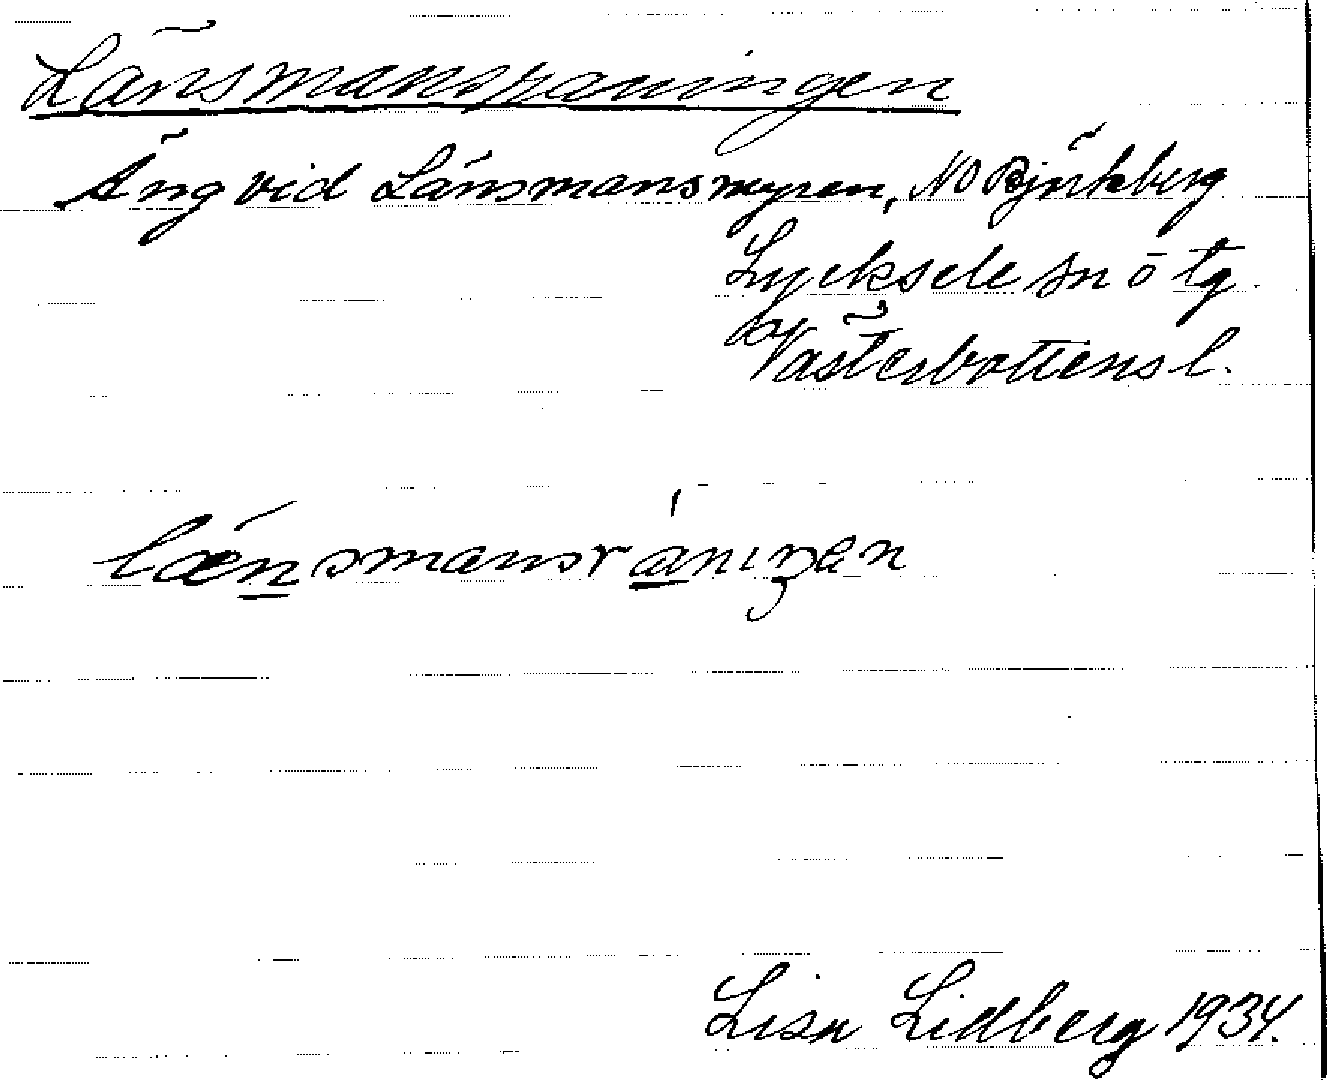 Länsmansraningen
Äng vid Länsmansmyren, NO Björkberg
Lycksele sn o tg
Västerbottens l.
lænsmansrániŋen
Lisa Lidberg 1934.